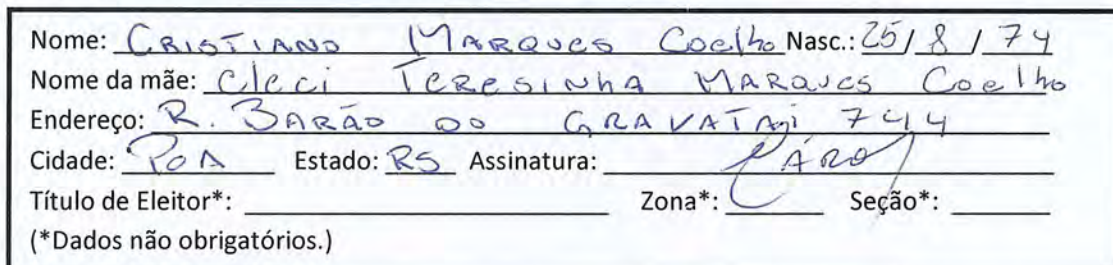 Nome: CRISTIANO MARQUES Coelho Nasc.: 25/ 8 / 74
Nome da mãe: Cleci TERESINHA MARQUES Coelho
Endereço: R. BARÃO DO GRAVATAI 744
Cidade: POA Estado: RS Assinatura:
Título de Eleitor*: Zona*: Seção*:
(*Dados não obrigatórios.)